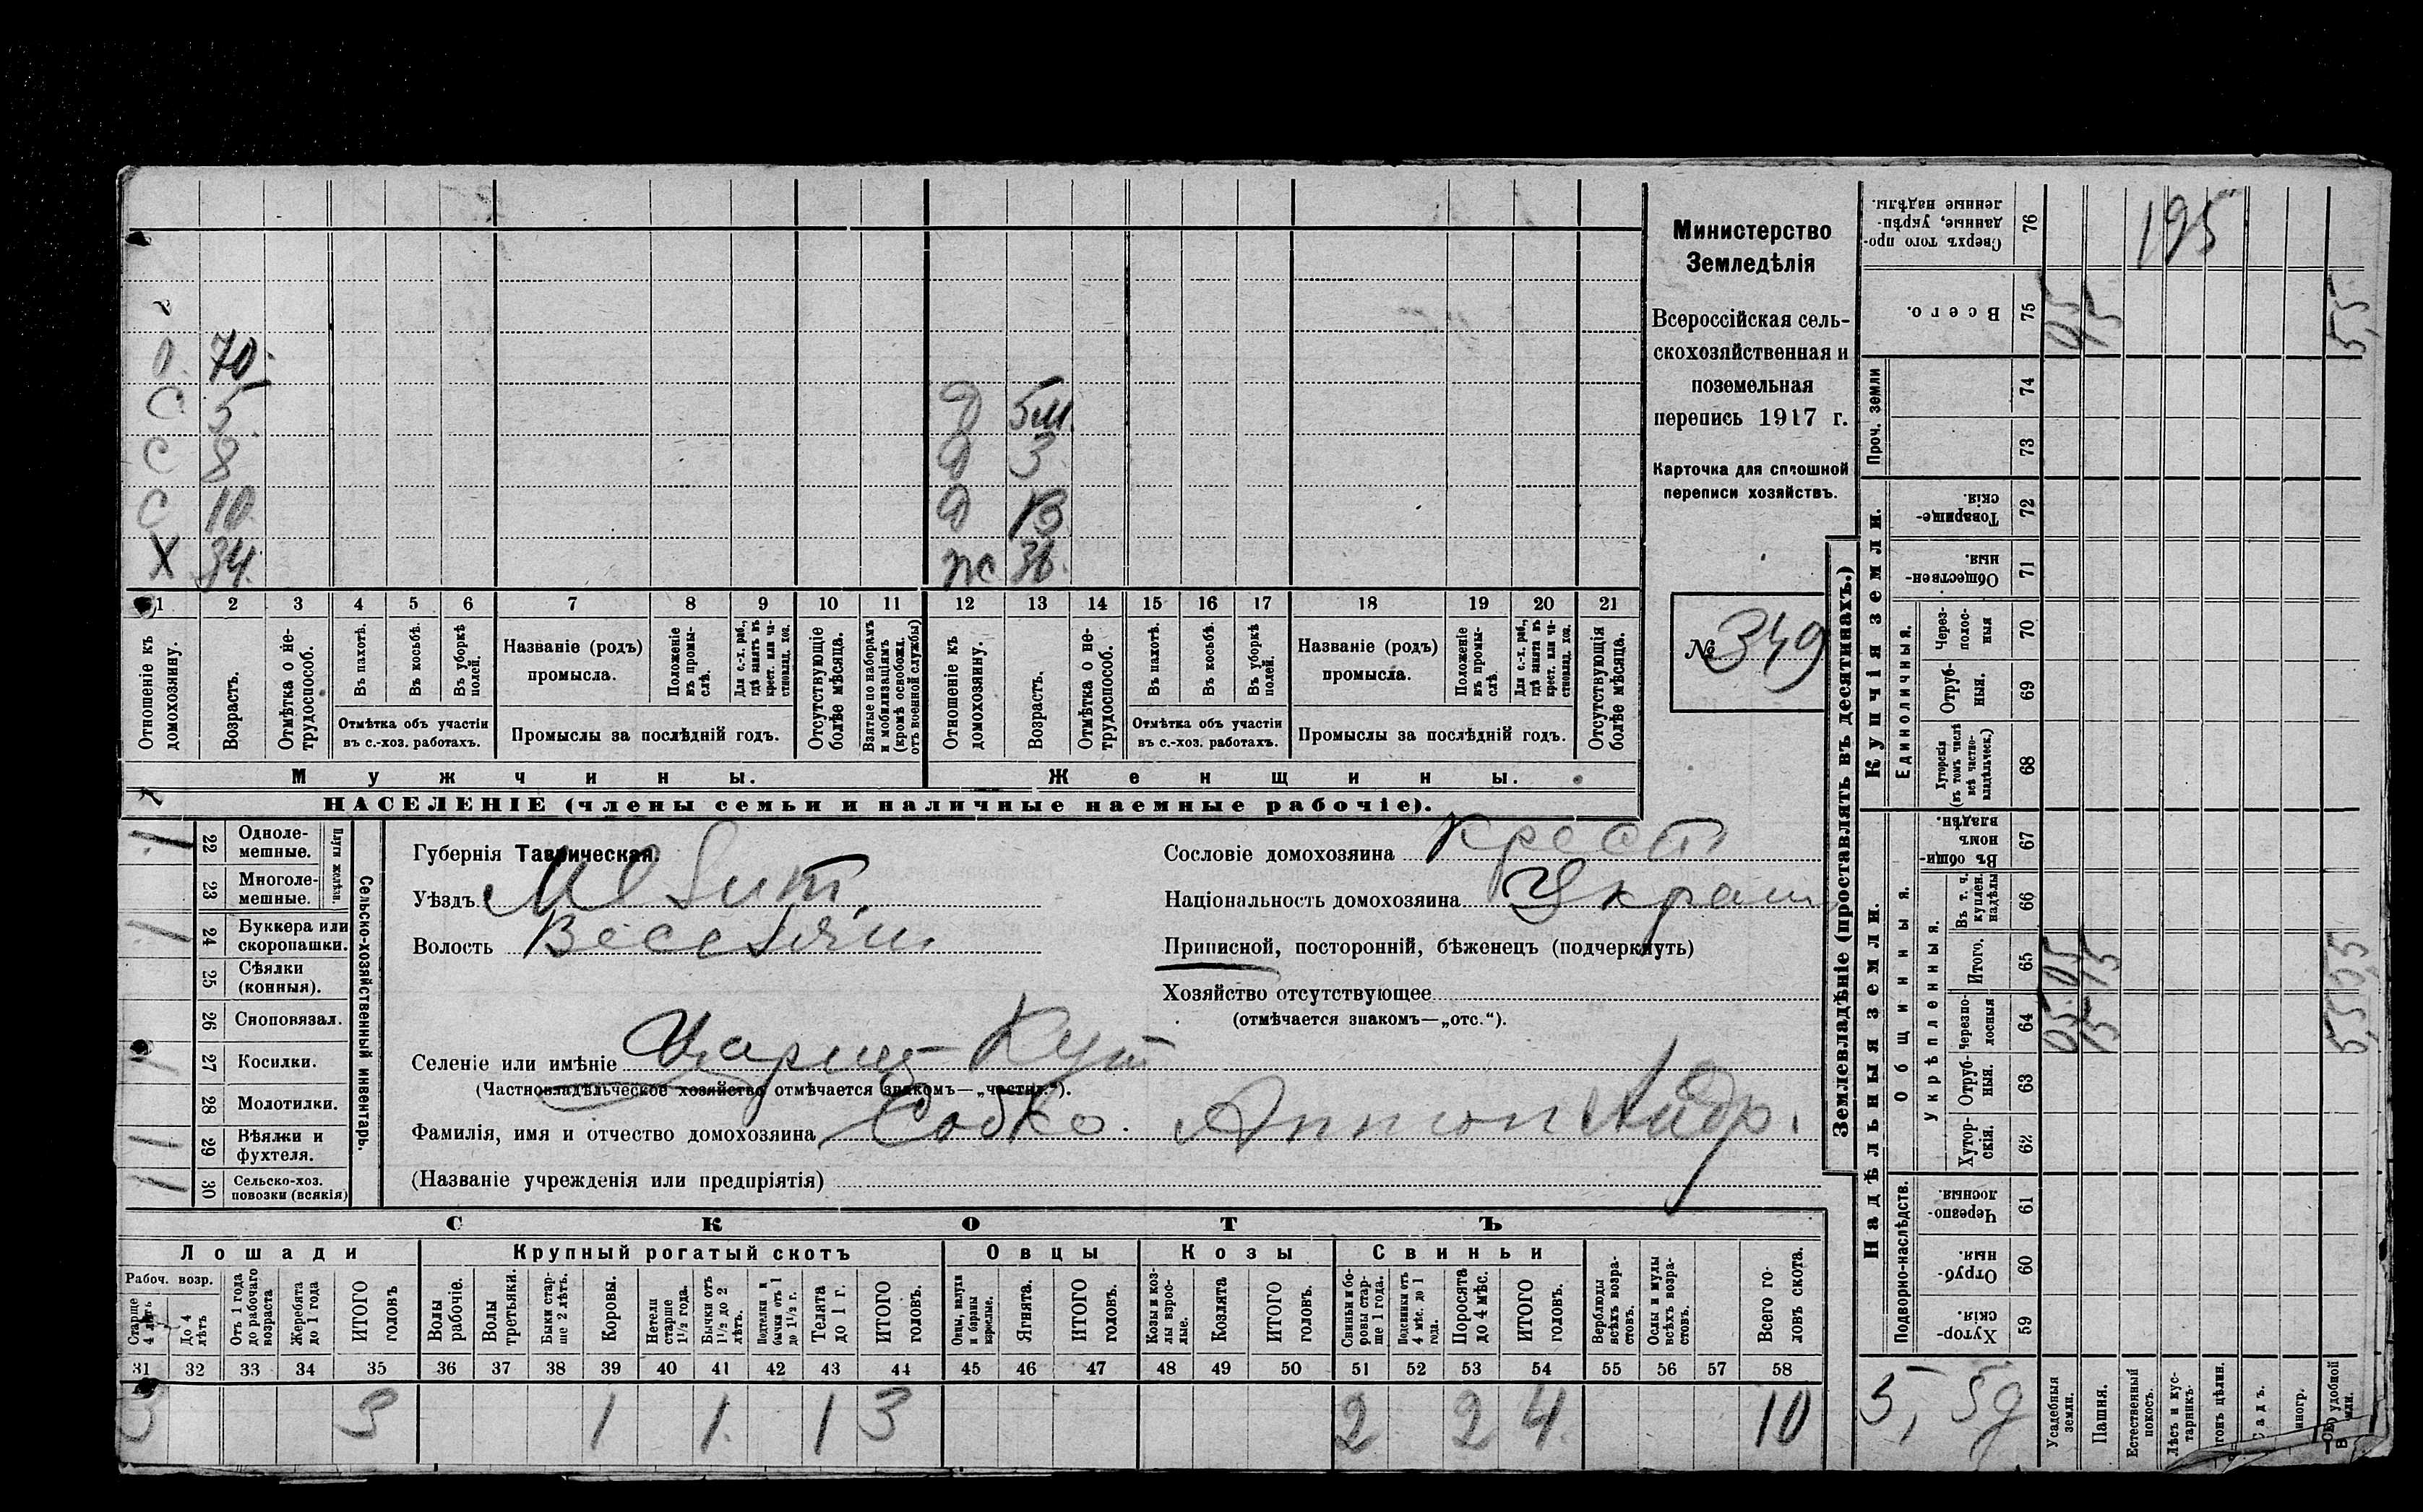 Министерство
Земледѣлія
Всероссійская сель-
скохозяйственная и
поземельная
перепись 1917 г.
Карточка для сплошной
переписи хозяйствъ.
№ 349
70
С 5 Д 5 м.
С 8 Д 3
С 10 Д
Х 34. ж 36.
1 2 3 4 5 6 7 8 9 10 11 12 13 14 15 16 17 18 19 20 21
Отношеніе къ домохозяину.
Возрастъ.
Отмѣтка о не-трудоспособ.
Въ пахотѣ.
Въ косьбѣ.
Въ уборкѣ полей.
Отмѣтка объ участіи
въ с.-хоз. работахъ.
Названіе (родъ)
промысла.
Положеніе въ промы-слѣ.
Для с.-х. раб., гдѣ занятъ въ крест. или ча-стновлад. хоз.
Промыслы за послѣдній годъ.
Отсутствующіе болѣе мѣсяца.
Взятые по наборамъ и мобилизаціямъ (кромѣ освобожд. отъ военной службы)
Отношеніе къ домохозяину.
Возрастъ.
Отмѣтка о не-трудоспособ.
Въ пахотѣ.
Въ косьбѣ.
Въ уборкѣ полей.
Отмѣтка объ участіи
въ с.-хоз. работахъ.
Названіе (родъ)
промысла.
Положеніе въ промы-слѣ.
Для с.-х. раб., гдѣ занята въ крест. или ча-стновлад. хоз.
Промыслы за послѣдній годъ.
Отсутствующія болѣе мѣсяца.
Мужчины.
Женщины.
НАСЕЛЕНІЕ (члены семьи и наличные наемные рабочіе).
Губернія Таврическая.
Уѣздъ
Волость
Селеніе или имѣніе Цариц Кут
(Частновладѣльческое хозяйство отмѣчается знакомъ—„частн.“).
Фамилія, имя и отчество домохозяина Собко Антон Андр.
(Названіе учрежденія или предпріятія)
Сословіе домохозяина крест
Національность домохозяина Украин
Приписной, посторонній, бѣженецъ (подчеркнуть)
Хозяйство отсутствующее
(отмѣчается знакомъ—„отс.“).
Сельско-хозяйственный инвентарь.
Плуги желѣзн.
1 22 Одноле-
мешные.
23 Многоле-
мешные.
1 24 Буккера или
скоропашки.
25 Сѣялки
(конныя).
26 Сноповязал.
1 27 Косилки.
28 Молотилки.
1 29 Вѣялки и
фухтеля.
1 30 Сельско-хоз.
повозки (всякія)
СКОТЪ
Лошади
Крупный рогатый скотъ
Овцы
Козы
Свиньи
Рабоч. возр.
Старше 4 лѣтъ
До 4 лѣтъ
Отъ 1 года до рабочаго возраста
Жеребята до 1 года
ИТОГО головъ
Волы рабочіе.
Волы третьяки.
Быки стар-ше 2 лѣтъ.
Коровы.
Нетели старше 1½ года.
Бычки отъ 1½ до 2 лѣтъ.
Подтелки и бычки отъ 1 до 1½ г.
Телята до 1 г.
ИТОГО головъ.
Овцы, валухи и бараны взрослые.
Ягнята.
ИТОГО головъ.
Козы и коз-лы взрос-лые.
Козлята
ИТОГО головъ.
Свиньи и бо-ровы стар-ше 1 года.
Подсвинки отъ 4 мѣс. до 1 года.
Поросята до 4 мѣс.
ИТОГО головъ.
Верблюды всѣхъ возра-стовъ.
Ослы и мулы всѣхъ возра-стовъ.
Всего го-ловъ скота.
31 32 33 34 35 36 37 38 39 40 41 42 43 44 45 46 47 48 49 50 51 52 53 54 55 56 57 58
3 3 1 1 1 3 2 2 4 10
Землевладѣніе (проставлять въ десятинахъ.)
Сверхъ того про-данные, укрѣп-ленные надѣлы. 76 195
Всего. 75
Проч. земли
74
73
Купчія земли.
Товарище-скія. 72
Обществен-ныя. 71
Единоличныя.
Через-полос-ныя 70
Отруб-ныя. 69
Хуторскія (въ томъ числѣ всѣ частно-владѣльческ.) 68
Надѣльныя земли.
Общинныя.
Въ общин-номъ владѣн. 67
Укрѣпленныя.
Въ т. ч. куплен. надѣлы 66
Итого. 65
Черезпо-лосныя 64
Отруб-ныя. 63
Хутор-скія. 62
Подворно-наслѣдств.
Черезпо-лосныя. 61
Отруб-ныя. 60
Хутор-скія 59
5, 5д
Усадебныя земли.
Пашня.
Естественный покосъ.
Лѣсъ и кус-тарникъ.